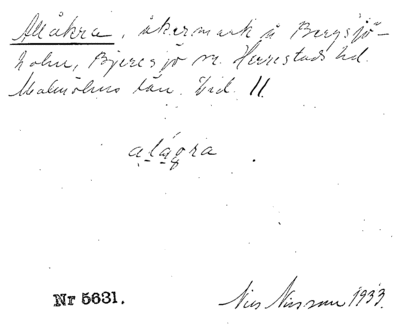 Allåkra, åkermark å Bergsjö-
holm, Bjeresjö sn. Herrestads hd.
Malmöhus län. Bid. 11
alågra
Nr 5631.
Nils Nilsson 1933.